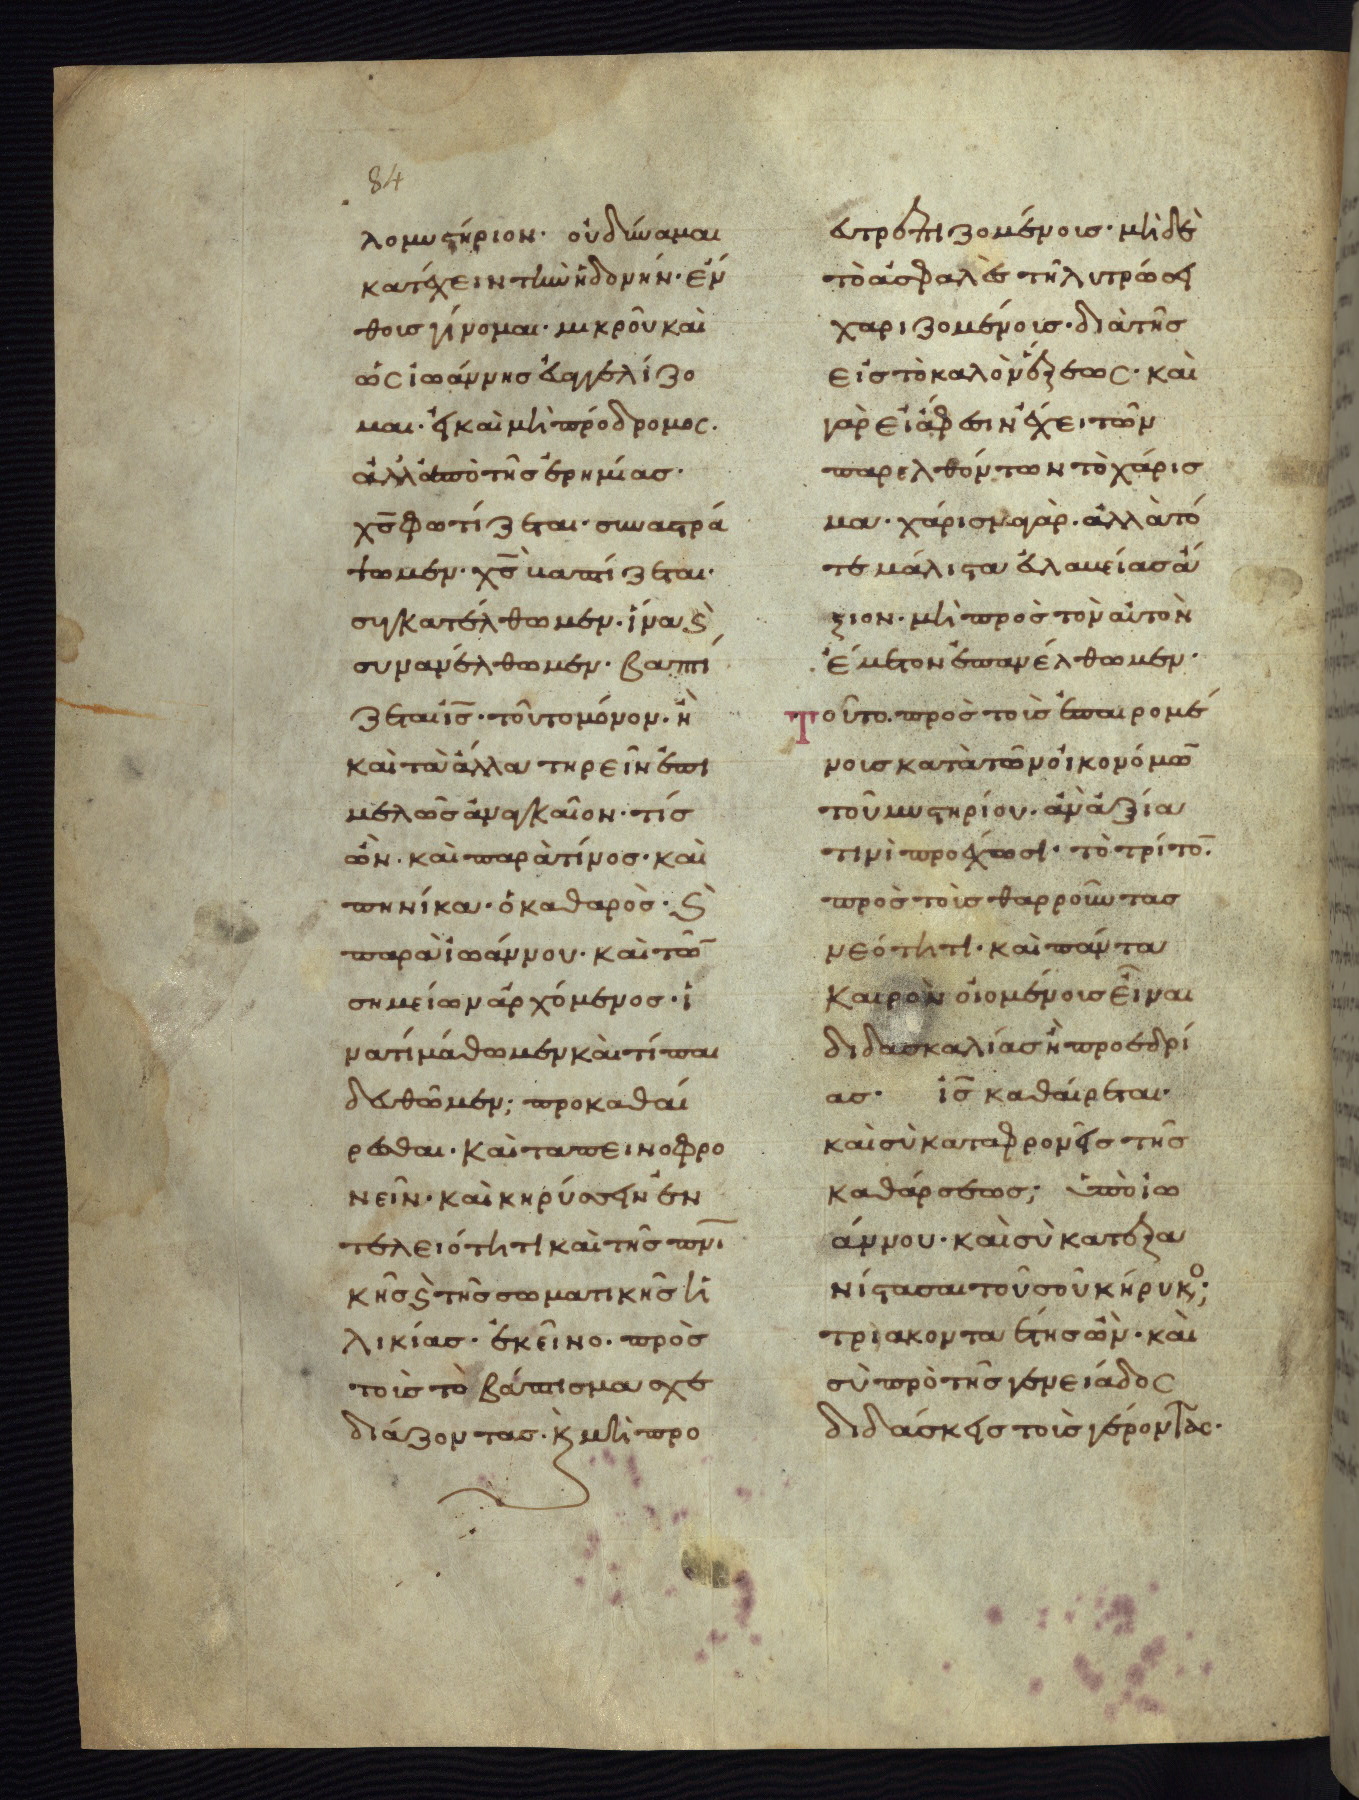 84
λομυστήριον· οὐ δύναμαι
κατέχειν τὴν ἡδονήν· ἔν
θους γίνομαι· μικροῦ καὶ
ὡς ἰωάννης εὐαγγελίζο
μαι· εἰ καὶ μὴ πρόδρομος.
ἀλλ' ἀπὸ τῆς ἐρημίας·
χς̅ φωτίζεται· συναστρά
ψωμεν· χς̅ βαπτίζεται·
συγκατέλθωμεν· ἵνα ϗ
συνανέλθωμεν· βαπτί
ζεται ις̅· τοῦτο μόνον· ἢ
καὶ τὰ ἄλλα τηρεῖν ἐπι
μελῶς ἀναγκαῖον· τίς
ὢν· καὶ παρὰ τίνος· καὶ
πηνίκα· ὁ καθαρὸς· ϗ
παρὰ ἰωάννου· καὶ τῶ̅
σημείων ἀρχόμενος· ἵ
να τί μάθωμεν καὶ τί παι
δευθῶμεν; προκαθαί
ρεσθαι· καὶ ταπεινοφρο
νεῖν· καὶ κηρύσσειν ἐν
τελειότητι καὶ τῆς πνι̅
κῆς ϗ τῆς σωματικῆς ἡ
λικίας· ἐκεῖνο· πρὸς
τοὺς τὸ βάπτισμα σχε
διάζοντας· ϗ μὴ προ
ευτρεπιζομένοις· μηδὲ
τὸ ἀσφαλὲς τῇ λυτρώσει
χαριζομένοις· διὰ τῆς
εἰς τὸ καλὸν ἕξεως· καὶ
γὰρ εἰ ἄφεσιν ἔχει τῶν
παρελθόντων τὸ χάρισ
μα· χάρισμα γάρ· ἀλλὰ τό
τε μάλιστα εὐλαβείας ἄ
ξιον· μὴ πρὸς τὸν αὐτὸν
ἔμετον ἐπανέλθωμεν·
Τοῦτο· πρὸς τοὺς ἐπαιρομέ
νους κατὰ τῶν οἰκονόμω̅
τοῦ μυστηρίου· ἂν ἀξία
τινὶ προέχωσι· τὸ τρίτο̅.
πρὸς τοὺς θαρροῦντας
νεότητι· καὶ πάντα
καιρὸν οἰομένοις εἶναι
διδασκαλίας ἢ προεδρί
ας· ις̅ καθαίρεται·
καὶ σὺ καταφρονεῖς τῆς
καθάρσεως; ὑπὸ ἰω
άννου· καὶ σὺ κατεξα
νίστασαι τοῦ σοῦ κήρυκο;
τριακονταέτης ὤν· καὶ
σὺ πρὸ τῆς γενειάδος
διδάσκεις τοὺς γέροντας·